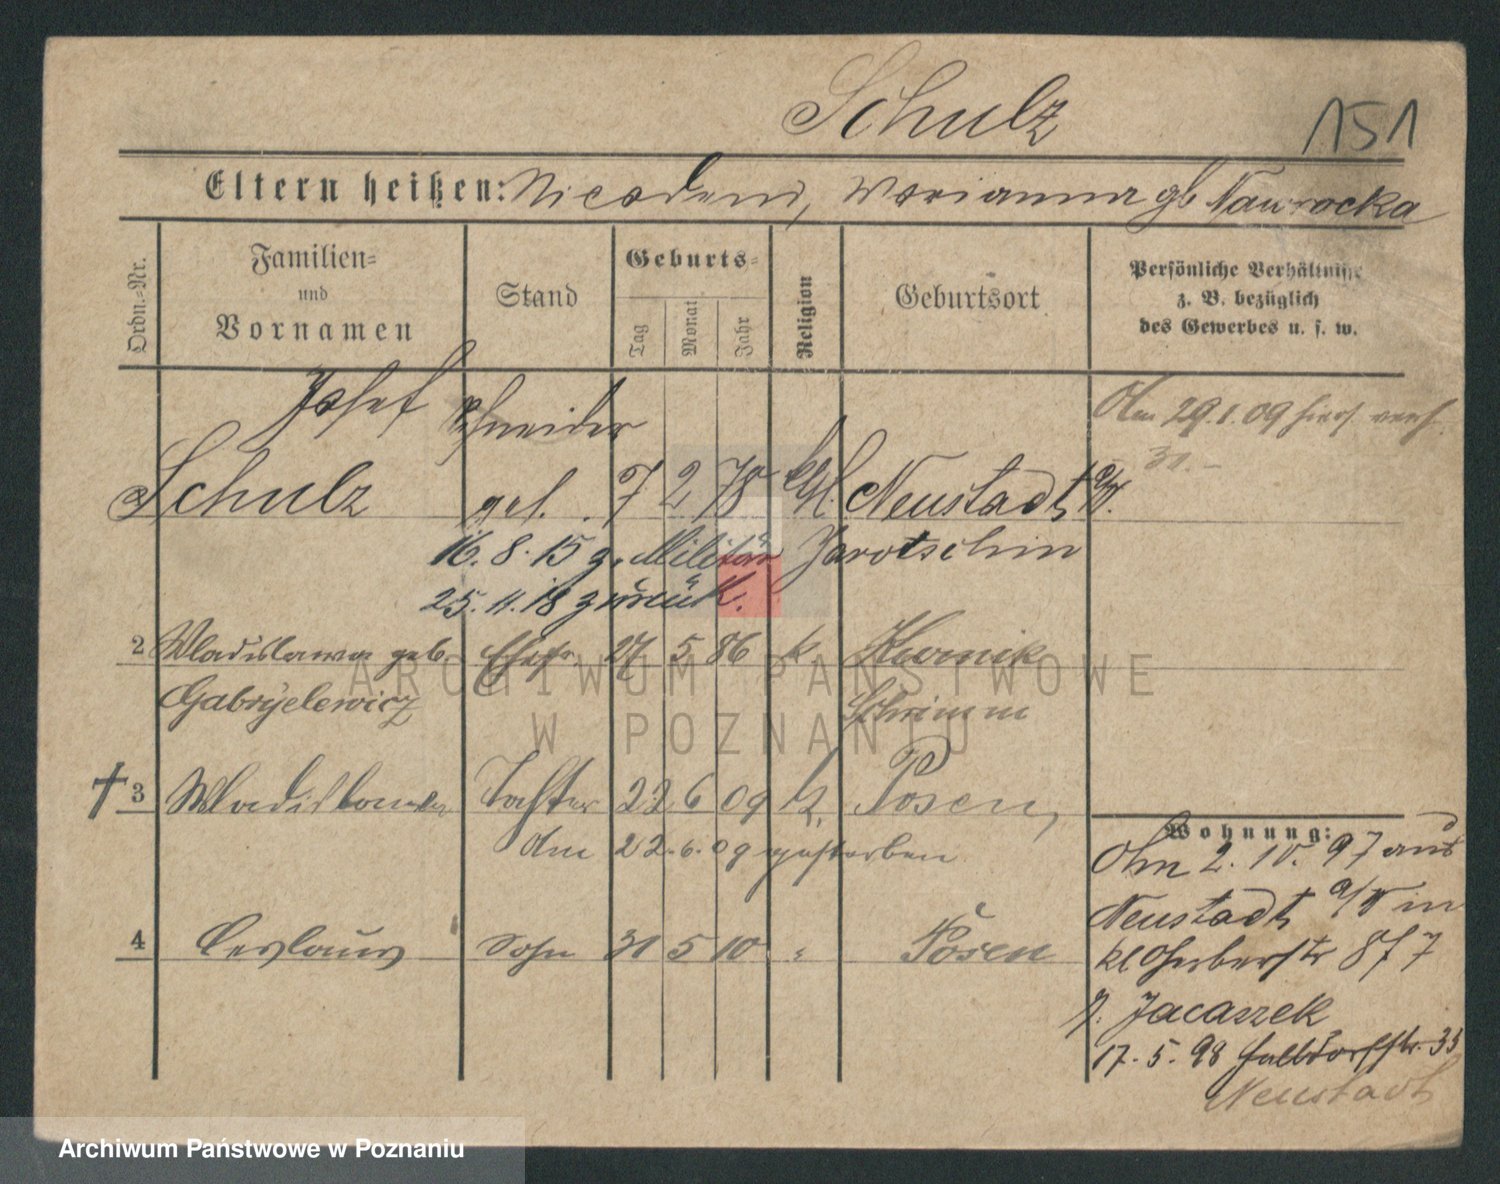 Schulz
151
Eltern heißen: Nicodem, Marianna gb Nawrocka
Ordn.-Nr.
Familien-
und
Vornamen
Stand
Geburts-
Tag
Monat
Jahr
Religion
Geburtsort
Persönliche Verhältnisse
z. B. bezüglich
des Gewerbes u. s. w.
Josef Schneider
Schulz gel. 7 2 78 kth. Neustadt a/W.
16. 8. 15 z. Militär Jarotschin
25. 11. 18 zurück.
Am 29.1.09 verh.
31.
2 Wladislawa geb. Ehefr. 27 5 86 k Kurnik
Gabryelewicz Schrimm
† 3 Wladislawa Tochter 22 6 09 k. Posen,
am 22.6.09 gestorben
4 Ceslaus Sohn 31 5 10 " Posen
Wohnung:
Am 2. 10. 97 aus
Neustadt a/W in
kl Gerberstr 8 f 7
b. Jacaszek
17. 5. 98 33
Neustadt
ARCHIWUM PAŃSTWOWE
W POZNANIU
Archiwum Państwowe w Poznaniu